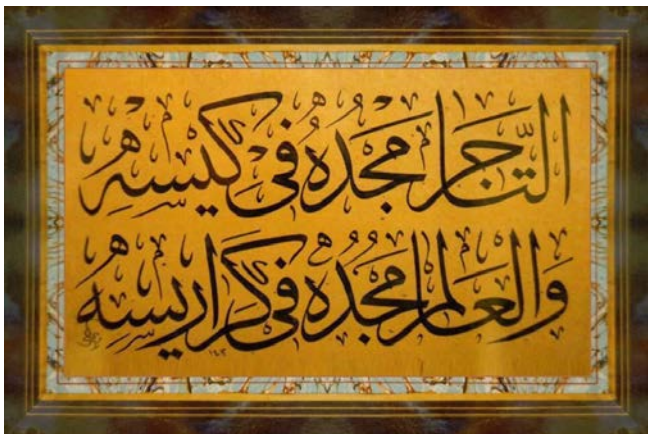 التَّاجِرُ مَجْدُهُ فِي كِيْسِهِ
وَالْعَالِمُ مَجْدُهُ فِي كَرَارِيسِهِ